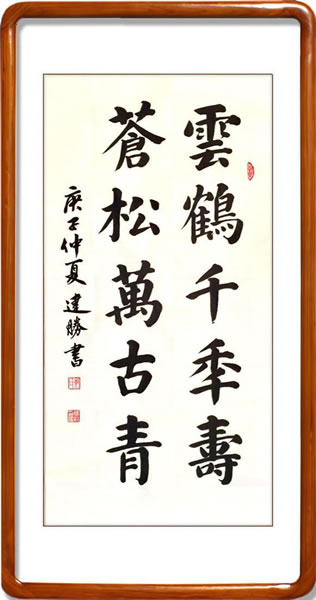 雲鶴千秊壽
蒼松萬古青
庚子仲夏建勝書